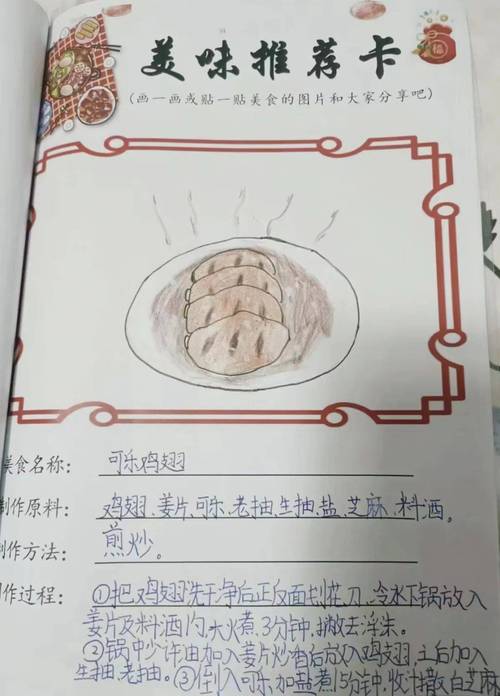 美味推荐卡
(画一画或贴一贴美食的图片和大家分享吧)
美食名称: 可乐鸡翅
制作原料: 鸡翅、姜片、可乐、老抽、生抽、盐、芝麻、料酒。
制作方法: 煎炒。
作过程: ①把鸡翅洗干净后正反面划花刀,冷水下锅放入
姜片及料酒1勺,大火煮3分钟,撇去浮朱。
②锅中少许油加入姜片炒香后放入鸡翅,之后加入
生抽,老抽。③倒入可乐,加盐煮15分钟,收汁撒白芝麻